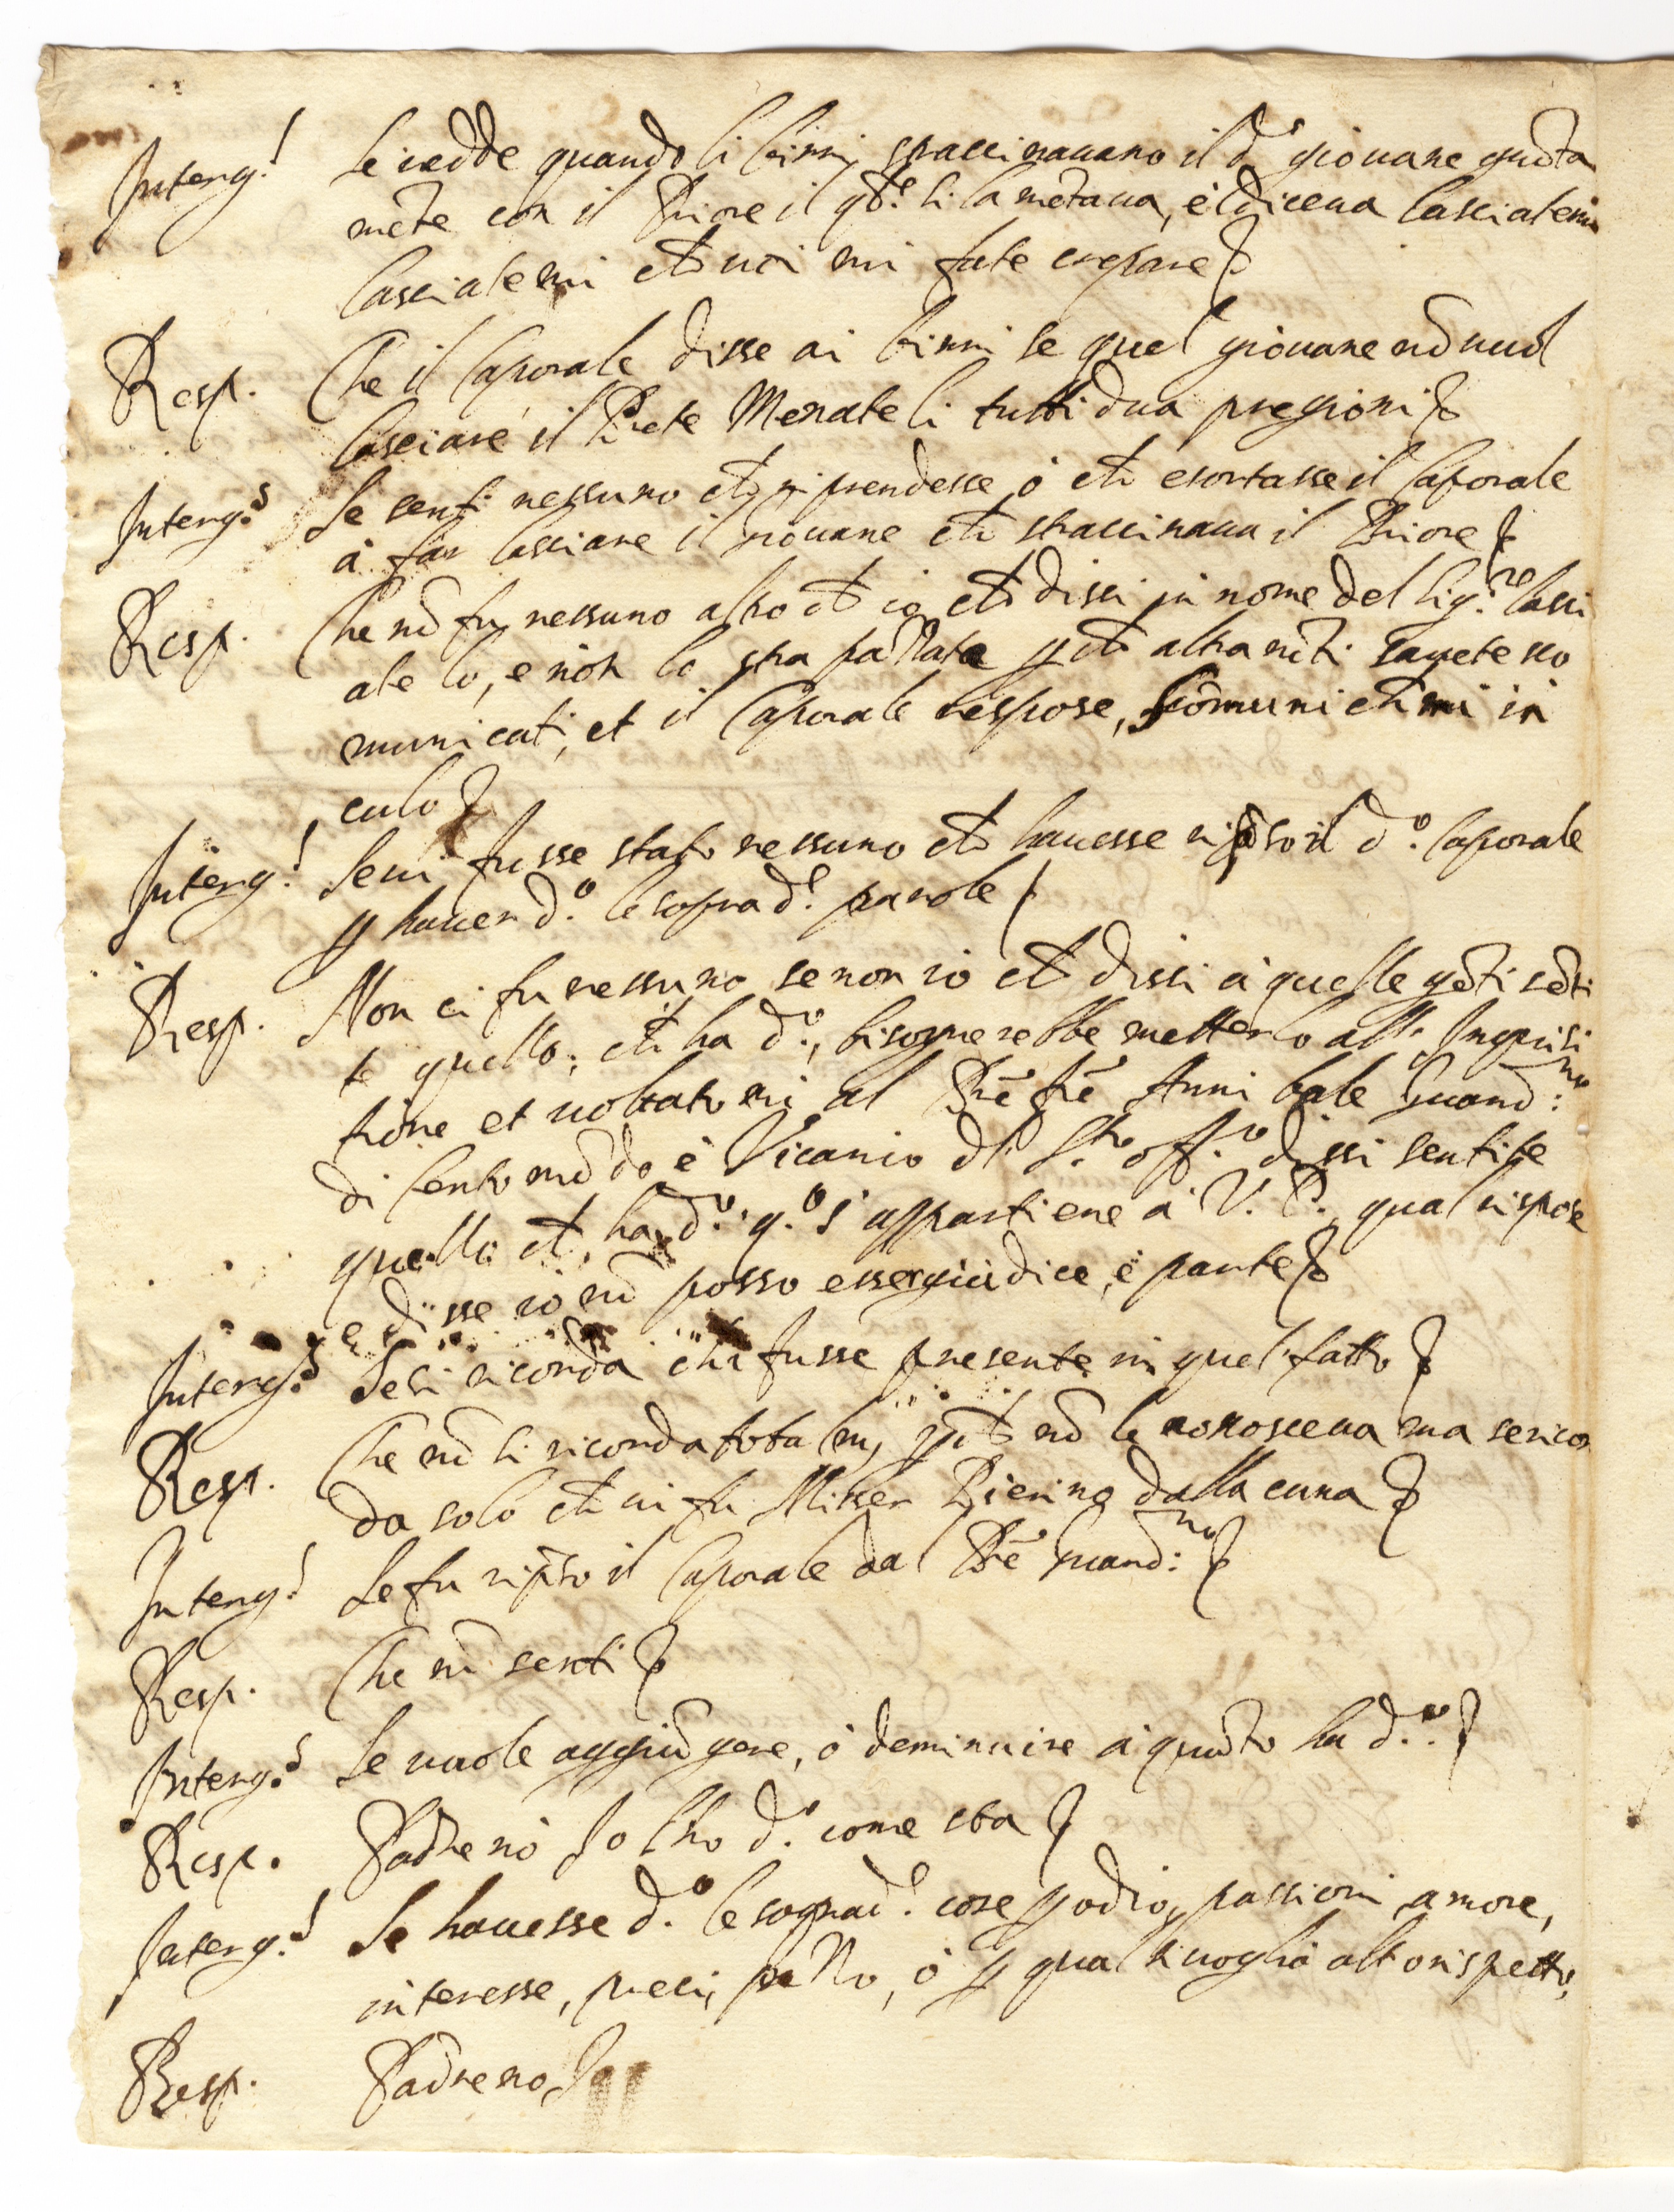 Interg.t Se vedde quando li birri strassinavano il d.o giovane giūta
mēte con il Priore il q̃le si lamētava, e diceva lasciatemi
lasciatemi ch̃ voi mi fate crepare
Resp. Che il Caporale disse ai birri se quel giovane nō vuol
lasciare il Prete Menateli tutti dua pregioni
Interg.s Se sentì nessuno ch̃ riprendesse ò ch̃ esortasse il Caporale
à far lasciare il giovane ch̃ strassinava il Priore
Resp. Che nō fu nessuno altro ch̃ io ch̃ dissi in nome del Sig.re lasci
atelo, e non lo strapallate p̱ch̃ altramēti sarete sco
municati, et il Caporale respose, scōmunich̃mi in
culo
Interg.t Se vi fusse stato nessuno ch̃ havesse ripreso il d.o Caporale
p̱ haver d.o le soprad.e parole
Resp. Non ci fu nessuno se non io ch̃ dissi à quelle gēti sēti
te quello, ch̃ ha d.o, bisognerebbe metterlo all'Inquisi
tione et voltatomi al Prẽ frẽ Annibale Guard:no
di Centomōdo è Vicario dl S.to Off.o dissi sentite
quello ch̃ ha d.o q.o s'appartiene à V. P. qual rispose
e disse io nō posso esser giudice, è parte
Interg.s Se si ricorda chi fusse presente in quel fatto
Resp. Che nō si ricorda p̱ch̃ nō le conosceva ma se ricor
da solo ch̃ vi fu Misser Pierino dalla cura
Interg.t Se fu ripso il Caporale dal Prẽ Guard:no
Resp. Che nō sentì
Interg.s Se vuole aggiūgere, ò deminuire à quāto ha d.o
Resp. Padre nò Io l'ho d.o come sta
Interg.t Se havesse d.o le soprad.e cose p̱ odio, passioni, amore,
interesse, preci, ò p̱ qual si voglia altro rispetto,
Resp. Padre no